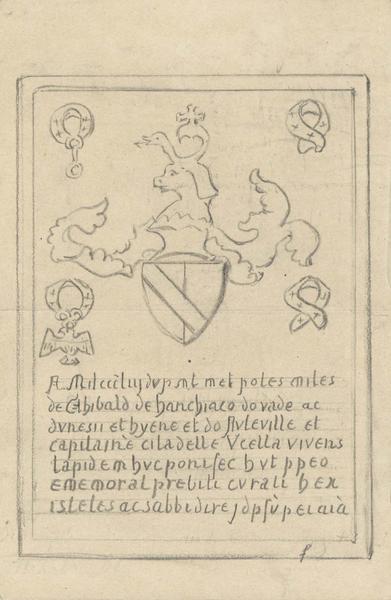 A Milcccluj dvpsnt met potes miles
de Thibald de hanchiaco do vade ac
dvnesii et hyene et do flvleville et
capitaine citadelle Vcella vivens
lapidem hvc poni fec hvt ppeo
ememoral prebiti cvrati hex
isteles ac sabbi dire j dp sup ei aia